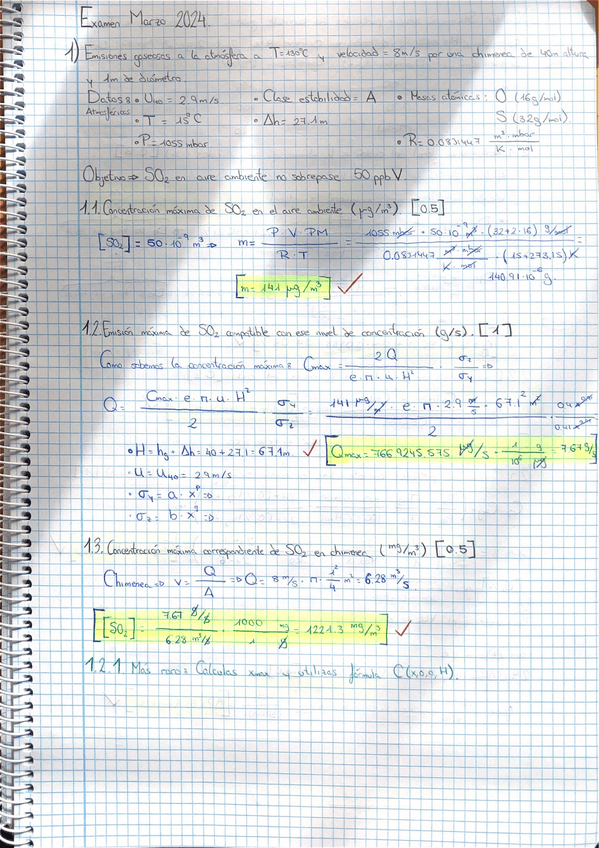 Examen Marzo 2024.
1) Emisiones gaseosas a la atmósfera a T=130°C y velocidad = 8m/s por una chimenea de 40m altura
y 1m de diámetro.
Datos: • U₄₀ = 2.9m/s • Clase estabilidad = A • Masas atómicas: O (16g/mol)
Atmosféricos • T = 15°C • Δh = 27.1m S (32g/mol)
• P = 1055 mbar • R = 0.0831447 m³·mbar / K·mol
Objetivo => SO₂ en aire ambiente no sobrepase 50 ppbV.
1.1. Concentración máxima de SO₂ en el aire ambiente (µg/m³) [0.5]
[SO₂] = 50·10⁻⁹ m³ => m = P·V·PM / R·T = 1055 mbar · 50·10⁻⁹ m³ · (32+2·16) g/mol / 0.0831447 m³·mbar / K·mol · (15+273,15) K =
140,91·10⁻⁶ g.
[m = 141 µg/m³] ✓
1.2. Emisión máxima de SO₂ compatible con ese nivel de concentración (g/s). [1]
Como sabemos la concentración máxima: Cmax = 2Q / e·π·u·H² · σz / σy =>
Q = Cmax·e·π·u·H² / 2 · σy / σz = 141 µg/m³ · e · π · 2.9 m/s · 67.1² m² / 2
• H = hg + Δh = 40 + 27.1 = 67.1m ✓ [Qmax = 7669245.575 µg/s · 1 g / 10⁶ µg = 7.67 g/s]
• u = U₄₀ = 2.9m/s
• σy = a · xᵖ =>
• σz = b · x^q =>
1.3. Concentración máxima correspondiente de SO₂ en chimenea (mg/m³) [0.5]
Chimenea => v = Q / A => Q = 8 m/s · π · 1² / 4 m² = 6.28 m³/s.
[[SO₂] = 7.67 g/s / 6.28 m³/s · 1000 mg / 1 g = 1221.3 mg/m³] ✓
1.2.1 Más raro: Calculas xmax y utilizas fórmula C(x,0,0,H).